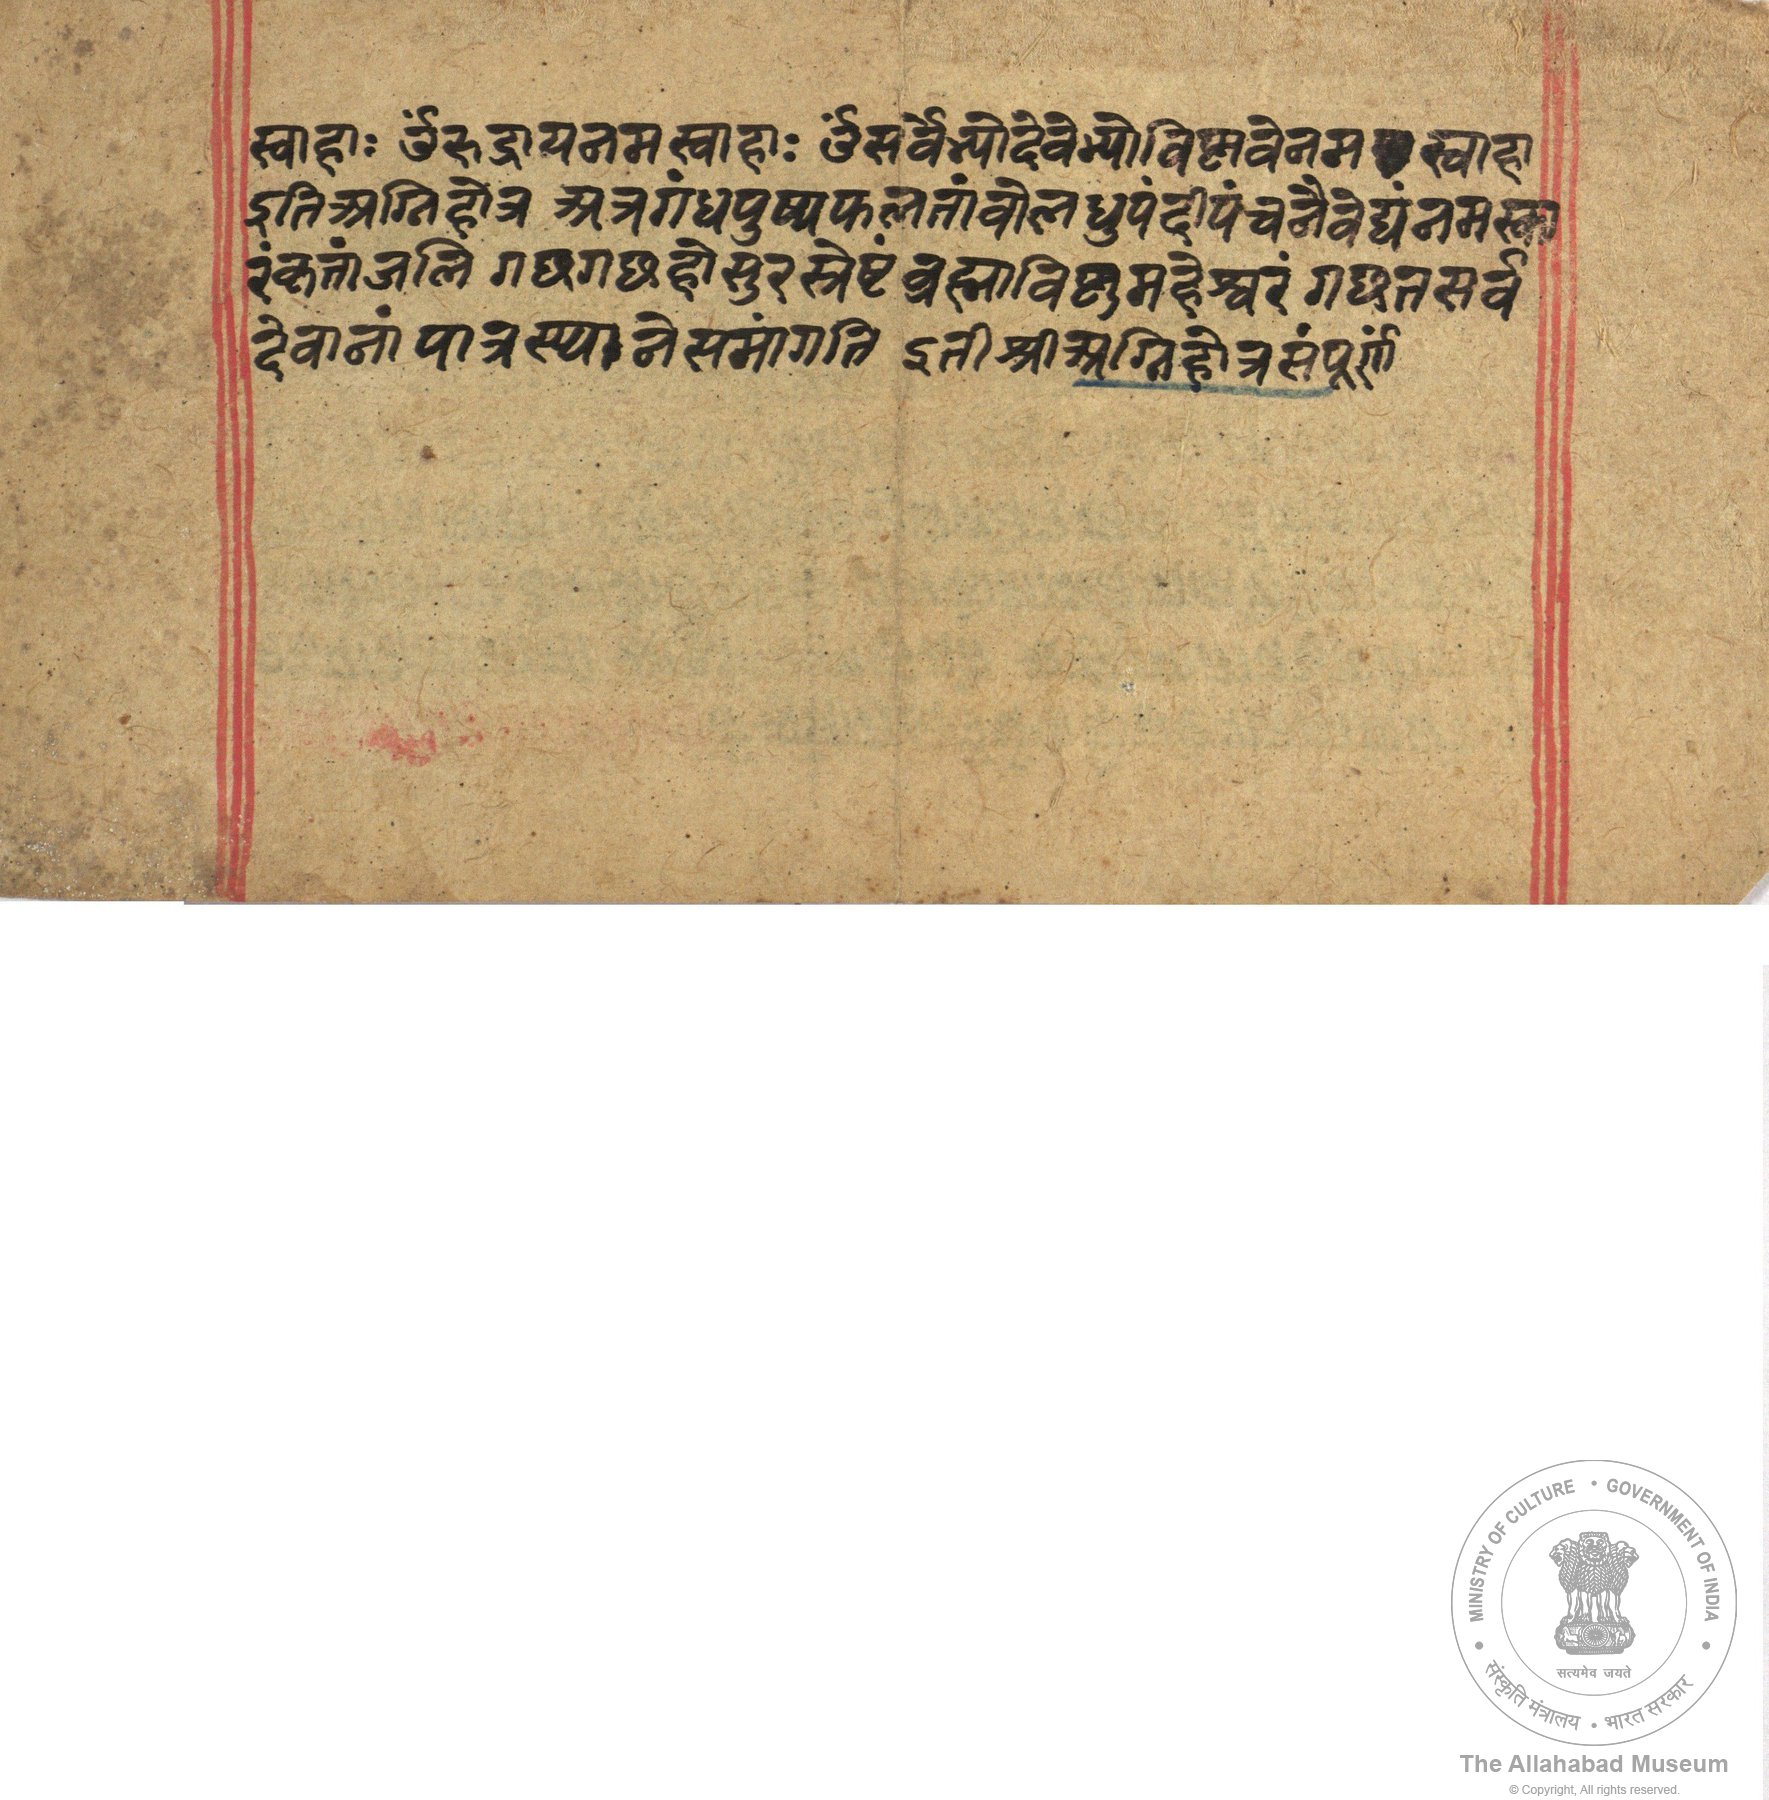 स्वाहाः ॐरुद्रायनमस्वाहाः ॐसर्वेभ्योदेवेभ्योविष्मवेनम स्वाहा
इतिअग्निहोत्र अत्रगंधपुष्पफलतांवोलधुपंदीपंचनैवेद्यंनमस्का
रंकृतांजलि गछगछहोसुरस्रेष्टंव्रह्माविष्णुमहेश्वरं गछतसर्व
देवानां पात्रस्थानेसमांगति इतीश्रीअग्निहोत्रसंपूर्णं
MINISTRY OF CULTURE • GOVERNMENT OF INDIA
सत्यमेव जयते
संस्कृति मंत्रालय • भारत सरकार
The Allahabad Museum
© Copyright, All rights reserved.